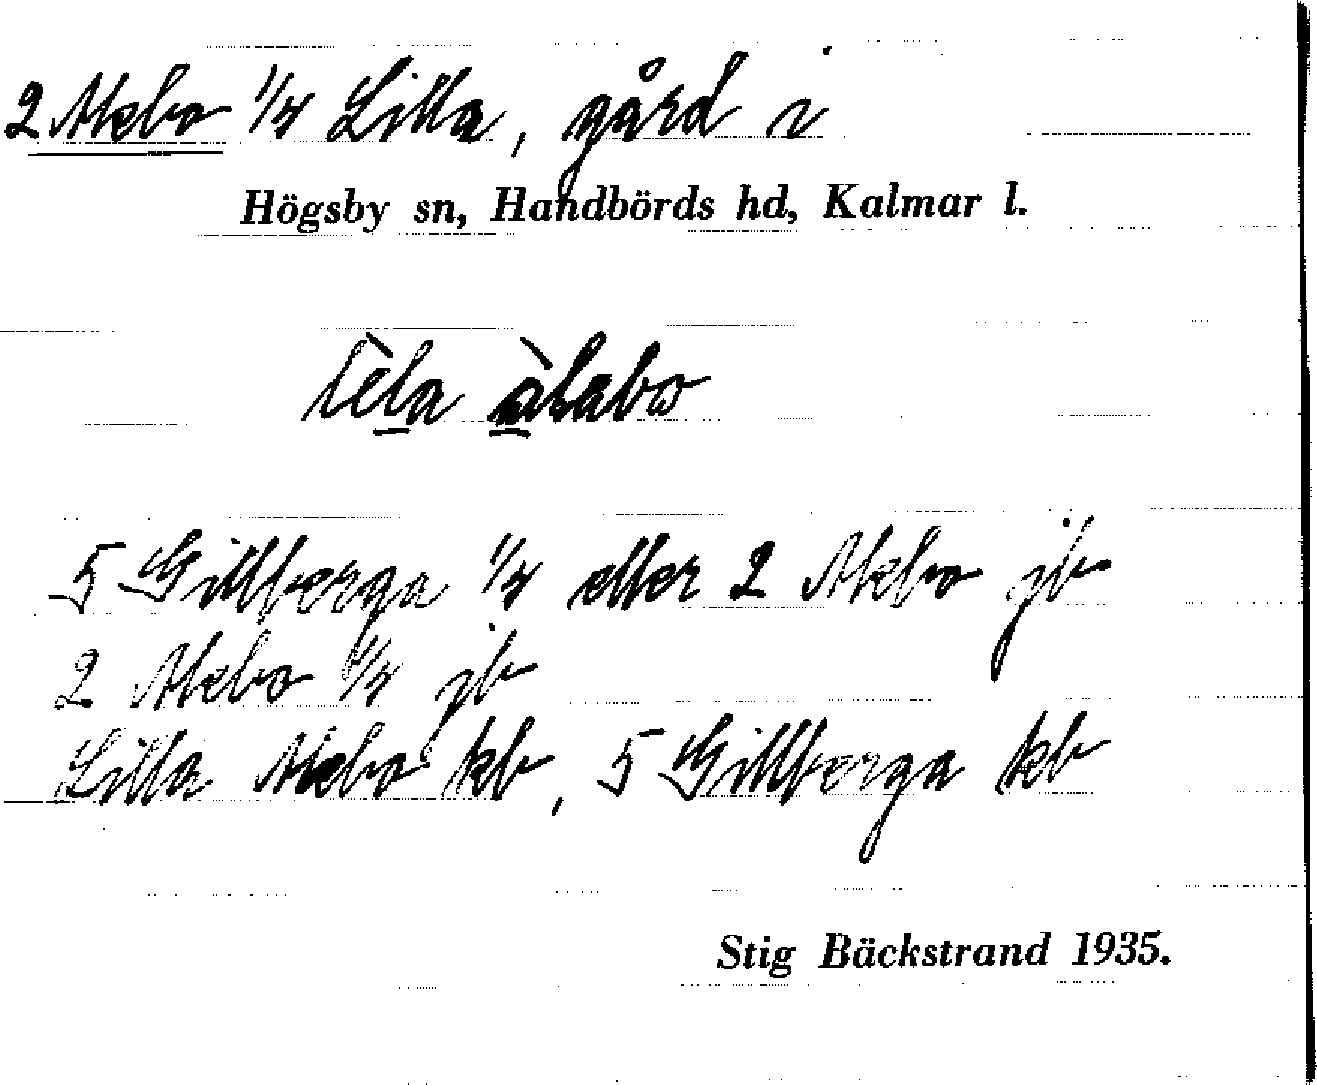 2 Akebo 1/4 Lilla, gård i
Högsby sn, Handbörds hd, Kalmar l.
lèla àkabo
5 Gillberga 1/4 eller 2 Akebo jb
2 Akebo 1/4 jb
Lilla Akebo kb, 5 Gillberga kb
Stig Bäckstrand 1935.